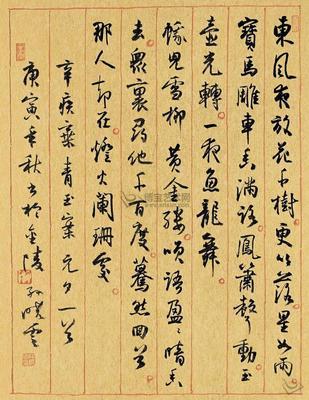 東風夜放花千樹更吹落星如雨
寶馬雕車香滿路鳳簫聲動玉
壺光轉一夜魚龍舞
蛾兒雪柳黃金縷笑語盈〻暗香
去衆裏尋他千百度驀然回首
那人卻在燈火闌珊處
辛疾棄青玉案元夕一首
庚寅年秋書於金陵孫曉雲
博宝艺术网